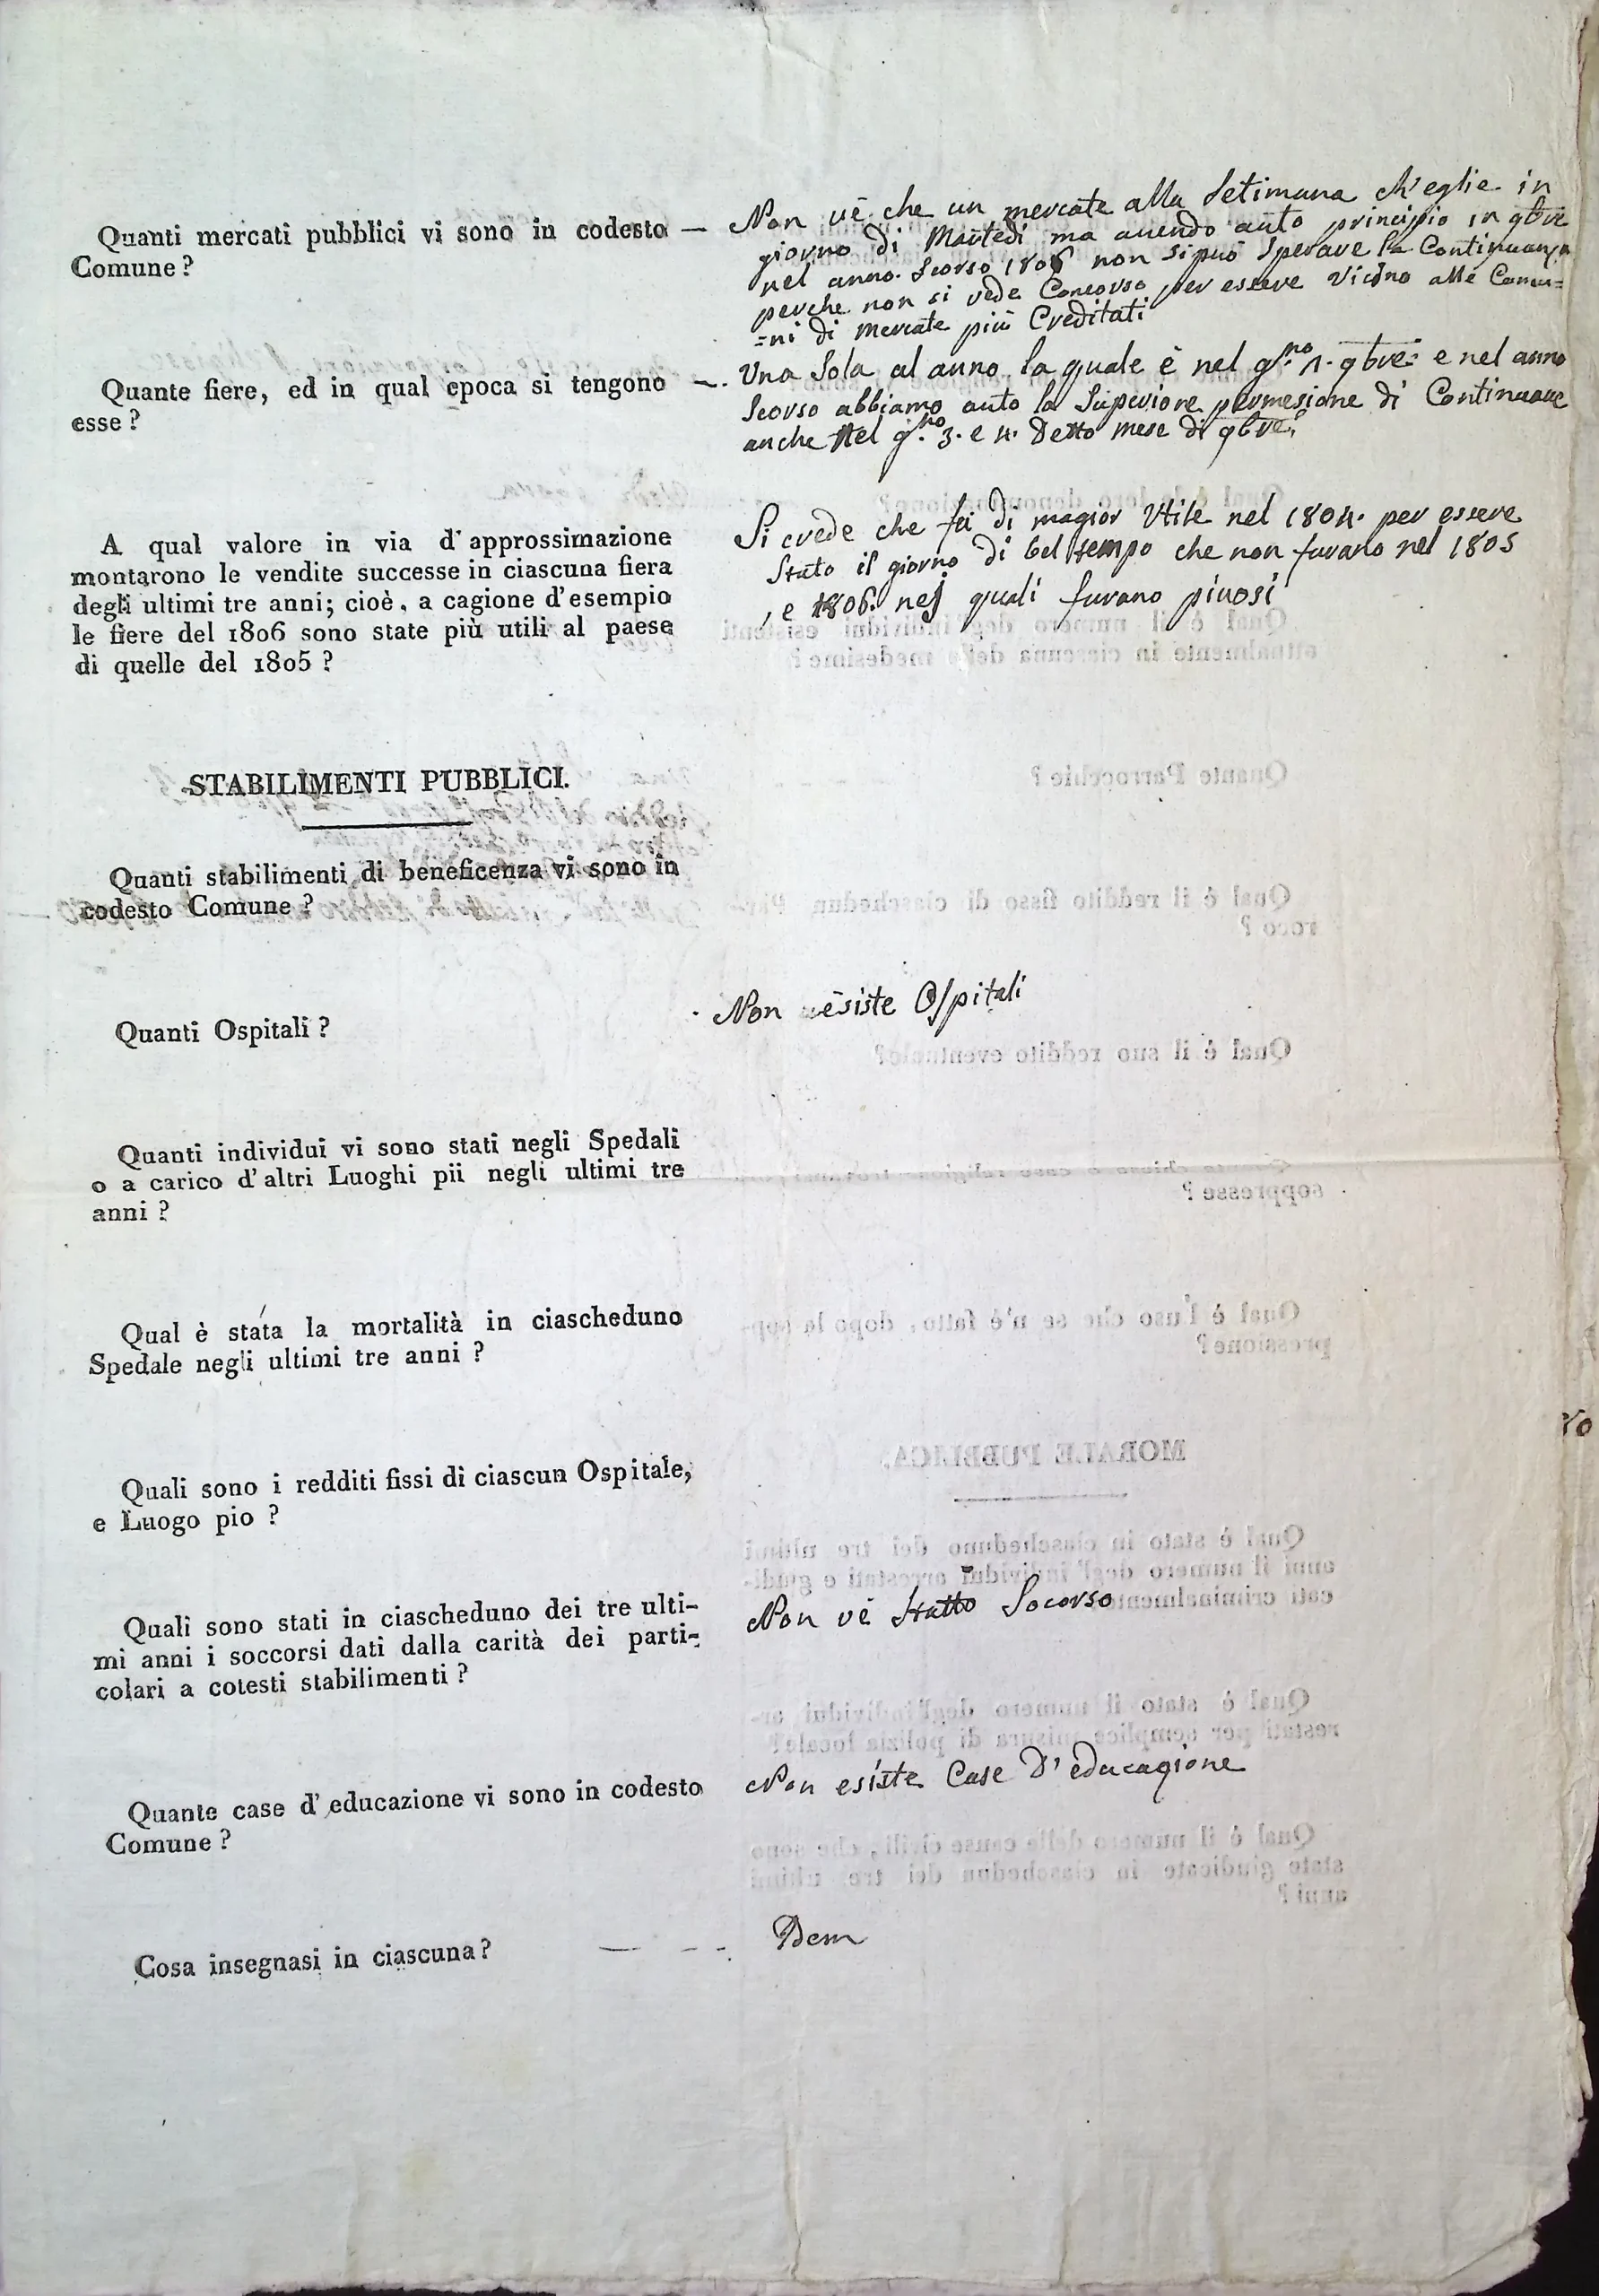 Quanti mercati pubblici vi sono in codesto —
Comune ?
Non vè che un mercate alla Setimana ch'eglie in
giorno di Martedi ma avendo auto principio in 9bre
nel anno scorso 1806 non si può Sperare la Continuanza
perche non si vede Concorso per essere Vicino alle Comu=
=ni di Mercate più Creditati
Quante fiere, ed in qual epoca si tengono —.
esse ?
Una Sola al anno la quale è nel g.no 1. 9bre: e nel anno
Scorso abbiamo auto la Superiore permesione di Continuare
anche Nel g.no 3. e 4. Detto mese di 9bre.
A qual valore in via d'approssimazione
montarono le vendite successe in ciascuna fiera
degli ultimi tre anni; cioè, a cagione d'esempio
le fiere del 1806 sono state più utili al paese
di quelle del 1805 ?
Si crede che fu di magior Utile nel 1804. per essere
Stato il giorno di bel tempo che non furano nel 1805
, e 1806. nej quali furano piuosi
STABILIMENTI PUBBLICI.
Quanti stabilimenti di beneficenza vi sono in
codesto Comune ?
Quanti Ospitali ?
Non esiste Ospitali
Quanti individui vi sono stati negli Spedali
o a carico d'altri Luoghi pii negli ultimi tre
anni ?
Qual è stata la mortalità in ciascheduno
Spedale negli ultimi tre anni ?
Quali sono i redditi fissi di ciascun Ospitale,
e Luogo pio ?
Quali sono stati in ciascheduno dei tre ulti-
mi anni i soccorsi dati dalla carità dei parti-
colari a cotesti stabilimenti ?
Non vè Statto Socorso
Quante case d'educazione vi sono in codesto
Comune ?
Non esiste Case D'educazione
Cosa insegnasi in ciascuna ? — - -.
Dem